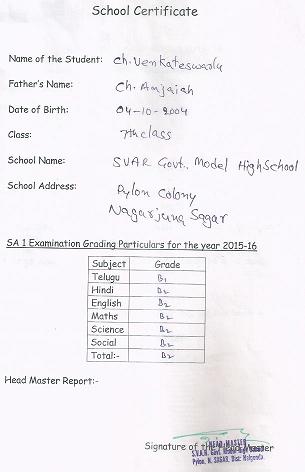 School Certificate
Name of the Student: Ch. Venkateswarly
Father's Name: Ch. Anjaiah
Date of Birth: 04-10-2004
Class: 7th class
School Name: SVAR Govt. Model High School
School Address: Pylon Colony
Nagarjuna Sagar
SA 1 Examination Grading Particulars for the year 2015-16
Subject Grade
Telugu B1
Hindi B2
English B2
Maths B2
Science B2
Social B2
Total:- B2
Head Master Report:-
Signature of the Head Master
HEAD MASTER
S.V.A.R. Govt. Model High School
Pylon, N. SAGAR, Dist: Nalgonda